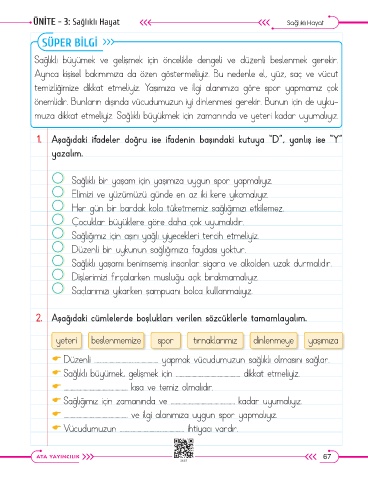 ÜNİTE - 3: Sağlıklı Hayat
Sağlıklı Hayat
SÜPER BİLGİ
Sağlıklı büyümek ve gelişmek için öncelikle dengeli ve düzenli beslenmek gerekir.
Ayrıca kişisel bakımımıza da özen göstermeliyiz. Bu nedenle el, yüz, saç ve vücut
temizliğimize dikkat etmeliyiz. Yaşımıza ve ilgi alanımıza göre spor yapmamız çok
önemlidir. Bunların dışında vücudumuzun iyi dinlenmesi gerekir. Bunun için de uyku-
muza dikkat etmeliyiz. Sağlıklı büyükmek için zamanında ve yeteri kadar uyumalıyız.
1. Aşağıdaki ifadeler doğru ise ifadenin başındaki kutuya "D", yanlış ise "Y"
yazalım.
Sağlıklı bir yaşam için yaşımıza uygun spor yapmalıyız.
Elimizi ve yüzümüzü günde en az iki kere yıkamalıyız.
Her gün bir bardak kola tüketmemiz sağlığımızı etkilemez.
Çocuklar büyüklere göre daha çok uyumalıdır.
Sağlığımız için aşırı yağlı yiyecekleri tercih etmeliyiz.
Düzenli bir uykunun sağlığımıza faydası yoktur.
Sağlıklı yaşamı benimsemiş insanlar sigara ve alkolden uzak durmalıdır.
Dişlerimizi fırçalarken musluğu açık bırakmamalıyız.
Saçlarımızı yıkarken şampuanı bolca kullanmalıyız.
2. Aşağıdaki cümlelerde boşlukları verilen sözcüklerle tamamlayalım.
yeteri beslenmemize spor tırnaklarımız dinlenmeye yaşımıza
Düzenli ........................ yapmak vücudumuzun sağlıklı olmasını sağlar.
Sağlıklı büyümek, gelişmek için ........................ dikkat etmeliyiz.
........................ kısa ve temiz olmalıdır.
Sağlığımız için zamanında ve ........................ kadar uyumalıyız.
........................ ve ilgi alanımıza uygun spor yapmalıyız.
Vücudumuzun ........................ ihtiyacı vardır.
ATA YAYINCILIK
67